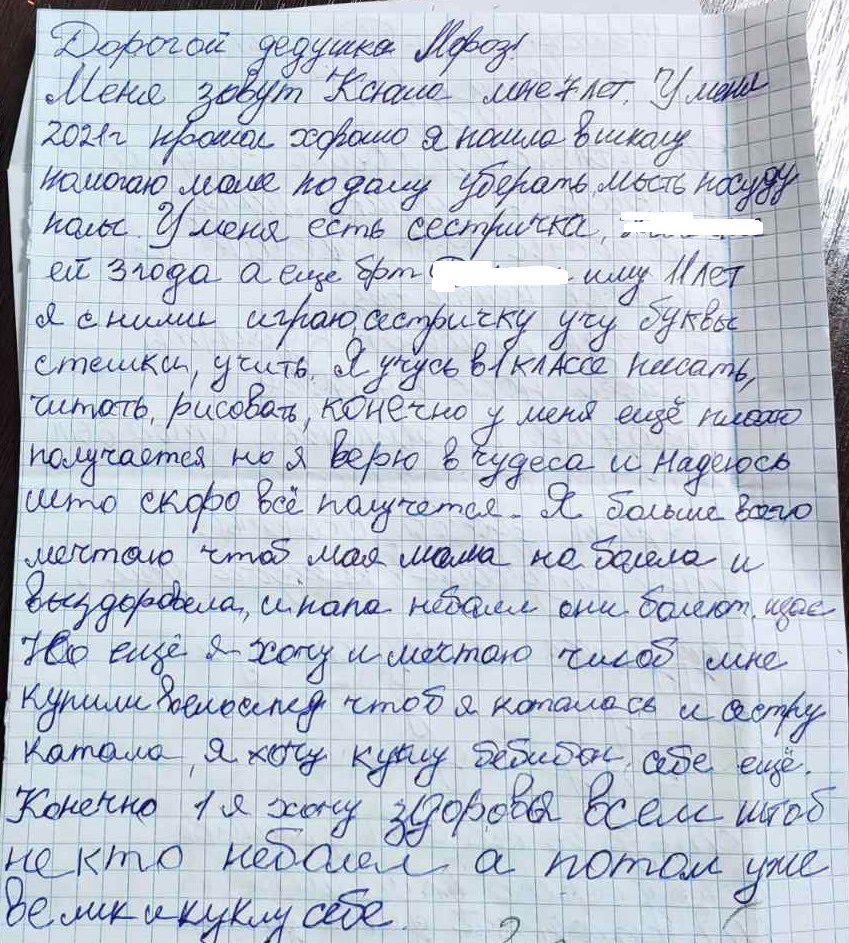 Дорогой дедушка Мороз!
Меня зовут Ксюша мне 7 лет. У меня
2021г прошол хорошо я пошла в школу
помогаю маме по дому уберать, мыть посуду
полы. У меня есть сестричка,
ей 3 года а еще брт иму 11 лет
я с ними играю, сестричку учу буквы
стешки, учить. Я учусь в 1 классе писать,
читать, рисовать, конечно у меня ещё плохо
получается но я верю в чудеса и надеюсь
што скоро всё получется. Я больше всего
мечтаю чтоб мая мама не болела и
выздоровела, и папа неболел они болеют щас
Но ещё я хочу и мечтаю чтоб мне
купили велосипед чтоб я каталась и сестру
катала, я хочу куклу бебибон себе ещё.
Конечно 1 я хочу здоровья всем штоб
некто неболел а потом уже
велик и куклу себе.